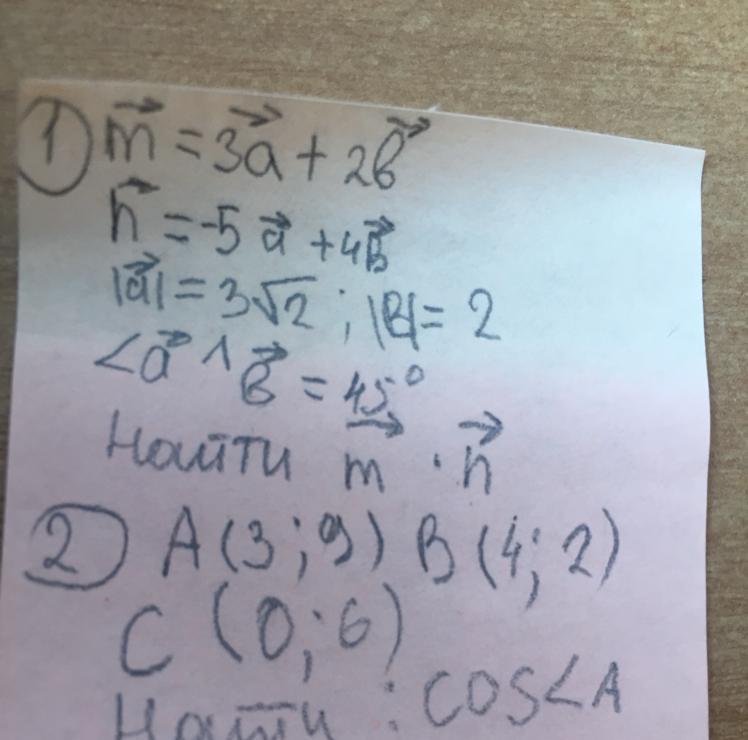 1 m⃗ = 3a⃗ + 2b⃗
n⃗ = -5a⃗ + 4b⃗
|a⃗| = 3√2 ; |b⃗| = 2
∠a⃗ ^ b⃗ = 45°
Найти m⃗ · n⃗
2 A(3;9) B(4;2)
C (0;6)
Найти : cos∠A